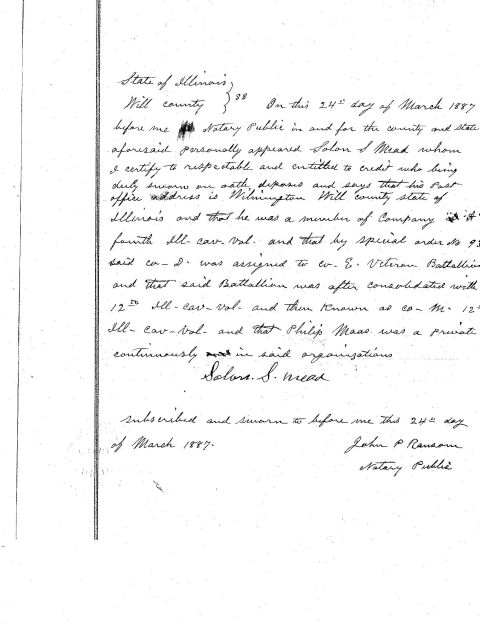 State of Illinois }
Will county } ss On this 24th day of March 1887
before me Notary Public in and for the county and state
aforesaid personally appeared Solon S Mead whom
I certify to respectable and entitled to credit who being
duly sworn on oath deposes and says that his Post
office address is Wilmington Will county state of
Illinois and that he was a member of Company
fourth Ill- cav- Vol- and that by special order No 93
said co- D- was assigned to co- E. Veteran Battallion
and that said Battallion was after consolidated with
12th Ill- cav- Vol- and then known as co- M- 12th
Ill- cav- Vol- and that Philip Maas was a private
continuously in said organizations
Solon. S. Mead
subscribed and sworn to before me this 24th day
of March 1887.
John P Ransom
Notary Public